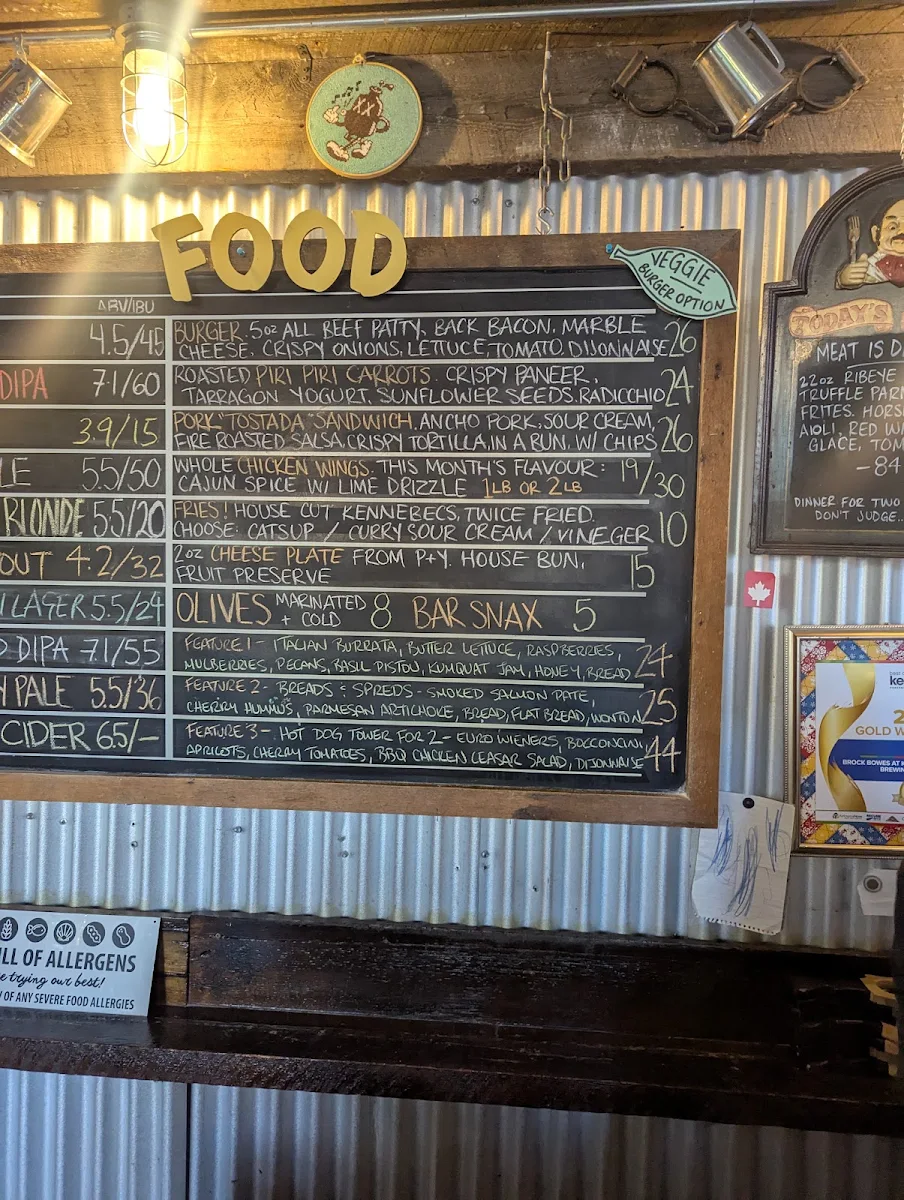 FOOD
VEGGIE
BURGER OPTION
ABV/IBU
4.5/45
BURGER. 5oz ALL BEEF PATTY. BACK BACON. MARBLE
CHEESE. CRISPY ONIONS, LETTUCE, TOMATO. DIJONNAISE 26
DIPA 7.1/60
ROASTED PIRI PIRI CARROTS. CRISPY PANEER,
TARRAGON YOGURT. SUNFLOWER SEEDS. RADICCHIO 24
3.9/15
PORK "TOSTADA" SANDWICH. ANCHO PORK, SOUR CREAM,
FIRE ROASTED SALSA, CRISPY TORTILLA, IN A BUN. W/ CHIPS 26
LE 5.5/50
WHOLE CHICKEN WINGS. THIS MONTH'S FLAVOUR: 19/30
CAJUN SPICE W/ LIME DRIZZLE 1LB OR 2LB
BLONDE 5.5/20
FRIES! HOUSE CUT KENNEBECS, TWICE FRIED.
CHOOSE: CATSUP / CURRY SOUR CREAM / VINEGER 10
OUT 4.2/32
2oz CHEESE PLATE FROM P+Y. HOUSE BUN,
FRUIT PRESERVE 15
LAGER 5.5/24
OLIVES MARINATED + COLD 8 BAR SNAX 5
DIPA 7.1/55
FEATURE 1 - ITALIAN BURRATA, BUTTER LETTUCE, RASPBERRIES,
MULBERRIES, PECANS, BASIL PISTOU, KUMQUAT JAM, HONEY, BREAD 24
PALE 5.5/36
FEATURE 2 - BREADS & SPREDS - SMOKED SALMON PATE,
CHERRY HUMMUS, PARMESAN ARTICHOKE, BREAD, FLAT BREAD, WONTON 25
CIDER 6.5/-
FEATURE 3 - HOT DOG TOWER FOR 2 - EURO WIENERS, BOCCONCINI,
APRICOTS, CHERRY TOMATOES, BBQ CHICKEN CEASAR SALAD, DIJONNAISE 44
TODAY'S
MEAT IS D
22oz RIBEYE
TRUFFLE PARM
FRITES. HORS
AIOLI, RED W
GLACE, TOM
-84
DINNER FOR TWO
DON'T JUDGE...
ke
2
GOLD W
BROCK BOWES AT K
BREWIN
ILL OF ALLERGENS
e trying our best!
OF ANY SEVERE FOOD ALLERGIES